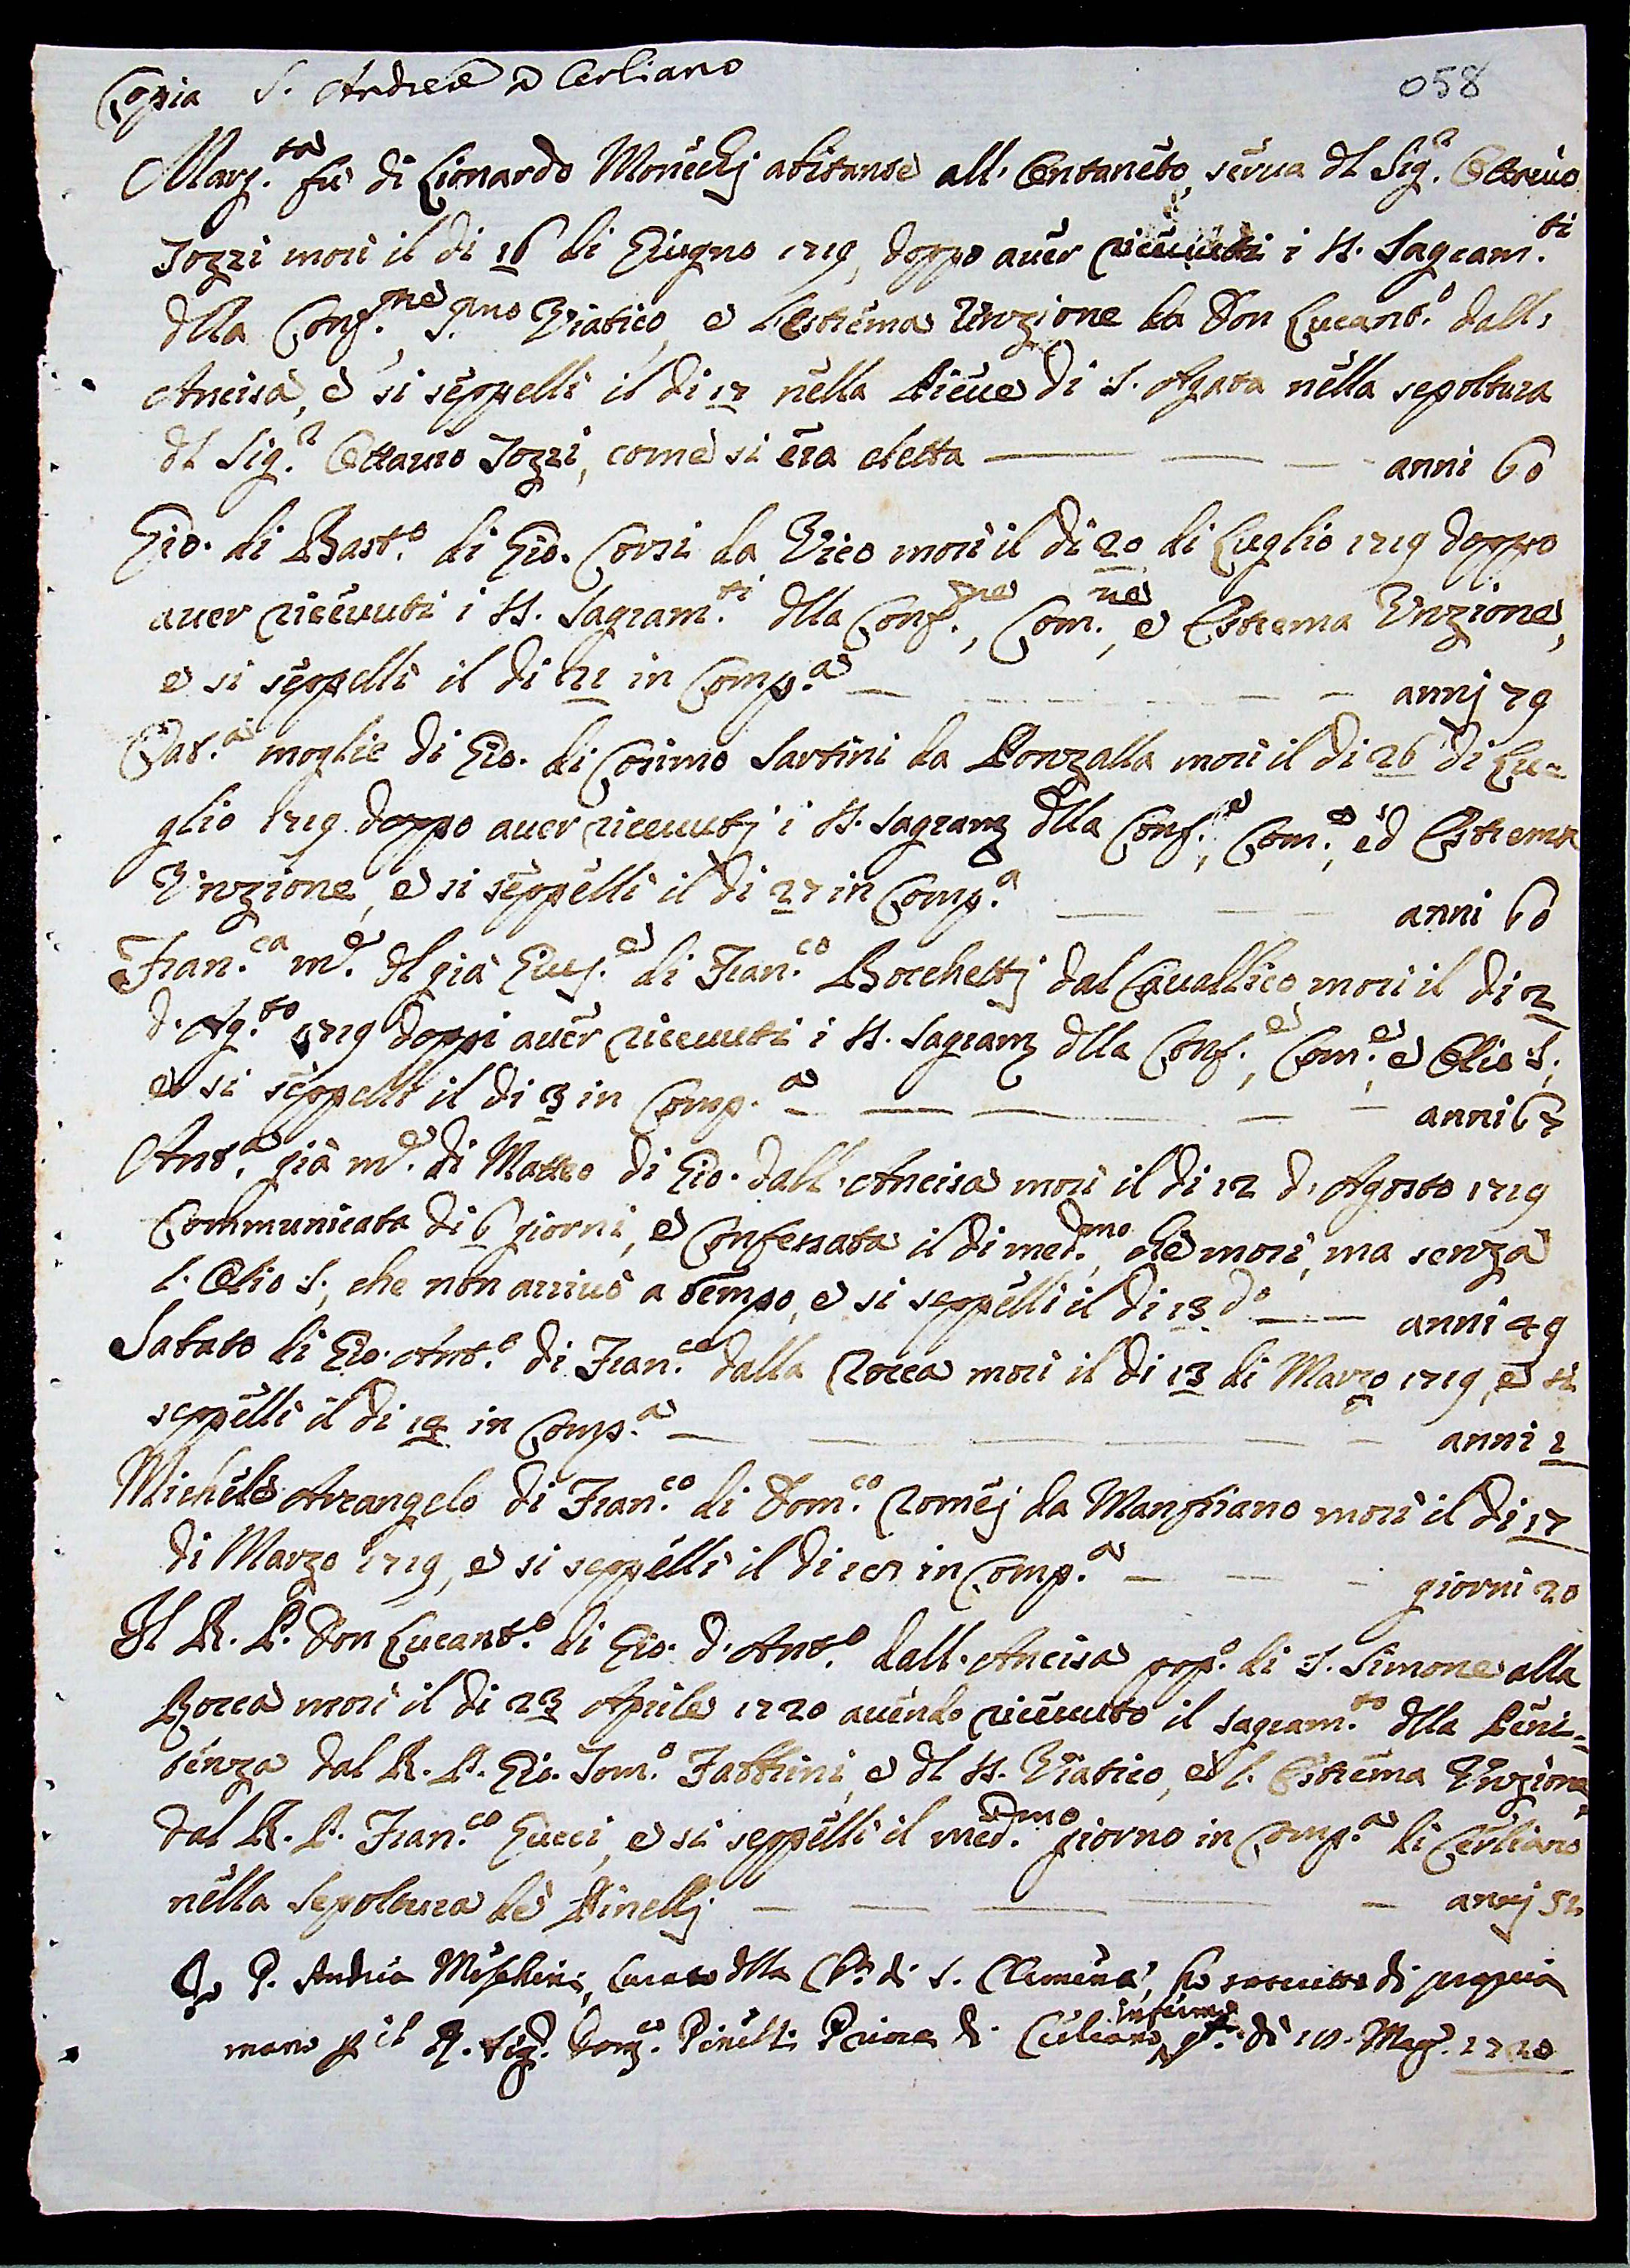 Copia S. Andrea a Cerliano
058
Marg.ta fù di Lionardo Monechj abitante all'Centaneto, serua dl Sig.r Ottauio
Jozzi morì il dì 16 di Giugno 1719, doppo auer riceuuti i SS. Sagram.ti
dlla Conf.ne, S.mo Viatico, e l'estrema Unzione da Don Lucant.o dall'
Ancisa, e si seppellì il dì 17 nella Pieue di S. Agata nella sepoltura
dl Sig.r Ottauio Jozzi, come si era eletta anni 60
Gio. di Bast.o di Gio. Corsi da Vico morì il dì 20 di Luglio 1719 doppo
auer riceuuti i SS. Sagram.ti dlla Conf.ne, Com.ne, e Estrema Unzione,
e si seppellì il dì 21 in Comp.a annj 79
Cat.a moglie di Gio. di Cosimo Sartini da Ponzalla morì il dì 26 di Lu=
glio 1719 doppo auer riceuutj i SS. Sagram dlla Conf.e, Com.e, ed Estrema
Unzione, e si seppellì il dì 27 in Comp.a anni 60
Fran.ca m.e dl già Gius.e di Fran.co Bocchettj dal Cauallico morì il dì 2
d'Ag.to 1719 doppi auer riceuuti i SS. Sagram dlla Conf.e, Com.e, e Olio S.,
e si seppellì il dì 3 in Comp.a anni 67
Ant.a già m.e di Matteo di Gio. dall'Ancisa morì il dì 12 d'Agosto 1719
Communicata di 6 giorni, e Confessata il dì med.mo che morì, ma senza
l'Olio S., che non arriuò a tempo, e si seppellì il dì 13 d.o anni 49
Sabato di Gio. Ant.o di Fran.co dalla Rocca morì il dì 13 di Marzo 1719, e si
seppellì il dì 14 in Comp.a anni 2
Michele Arcangelo di Fran.co di Dom.co Romej da Mangliano morì il dì 17
di Marzo 1719, e si seppellì il dì 18 in Comp.a giorni 20
Il R. P. Don Lucant.o di Gio. d'Ant.o dall'Ancisa pop.o di S. Simone alla
Rocca morì il dì 23 Aprile 1720 auendo riceuuto il sagram.to dlla Peni=
tenza dal R. P. Gio. Dom.o Fabbrini, e dl SS. Viatico, e l'Estrema Unzione,
dal R. P. Fran.co Gucci, e si seppellì il med.mo giorno in Comp.a di Cerliano
nella sepoltura dè Pinellj annj 52
P. Andrea Curato dlla Ch.a di S. Clemente, ho scritto di propria
mano p il R. Sig.r Pinelli di Cerliano infermo dì 18. Mag.o 1720